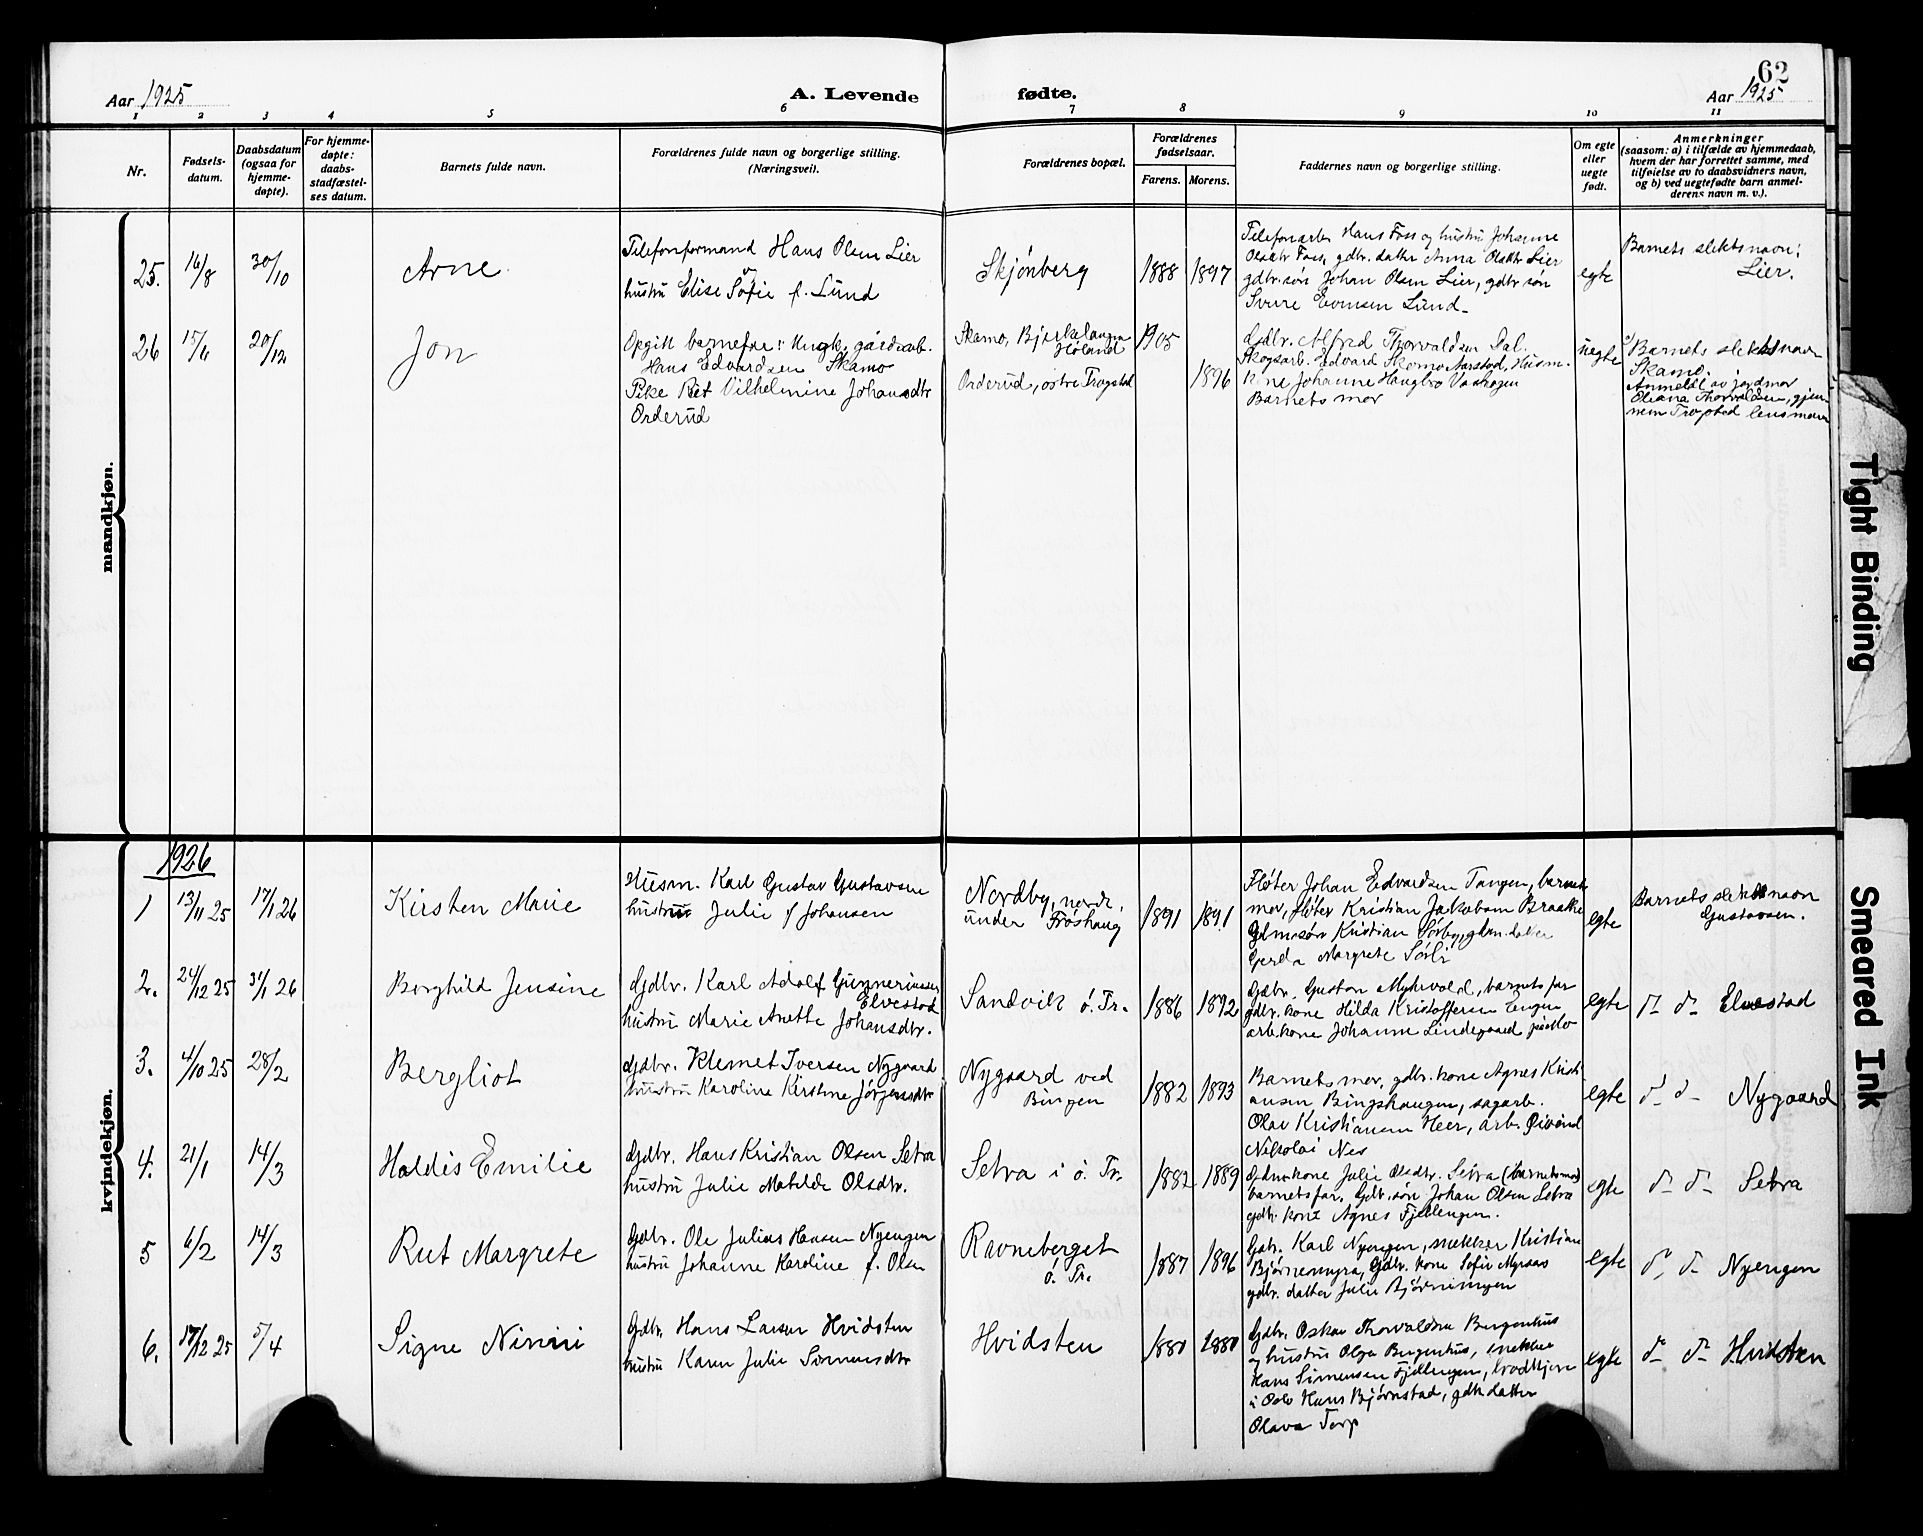 62
Aar 1925
A. Levende fødte.
Aar 1925
1 2 3 4 5 6 7 8 9 10 11
Nr.
Fødsels-
datum.
Daabsdatum
(ogsaa for
hjemme-
døpte).
For hjemme-
døpte:
daabs-
stadfæstel-
ses datum.
Barnets fulde navn.
Forældrenes fulde navn og borgerlige stilling.
(Næringsvei).
Forældrenes bopæl.
Forældrenes
fødselsaar.
Farens. Morens.
Faddernes navn og borgerlige stilling.
Om egte
eller
uegte
født.
Anmerkninger
(saasom: a) i tilfælde av hjemmedaab,
hvem der har forrettet samme, med
tilføielse av to daabsvidners navn,
og b) ved uegtefødte barn anmel-
derens navn m. v.).
mandkjøn.
25. 16/8 30/10
Arne
Telefonformand Hans Olsen Lier
hustru Elise Sofie f. Lund
Skjønberg
1888 1897
Telefonarb. Hans Foss og hustru Johanne
Olsdtr Foss, gdbr. datter Anna Olsdtr Lier
gdbr. søn Johan Olsen Lier, gdbr søn
Sverre Evensen Lund
egte
Barnets slektsnavn:
Lier.
26 15/6 20/12
Jon
Opgitt barnefar: Ungk. gårdsarb.
Hans Edvardsen Skamo
Pike Vilhelmine Johansdtr
Orderud
Skamo, Bjørkelangen
Høland
Orderud, østre Trøgstad
1905
1896
Gdbr. Alfred Thorvaldsen Dal.
Skogsarb. Edvard Skamo Aarstad, Husm.
kone Johanne Haugbro
Barnets mor
uegte
Barnets slektsnavn
Skamo.
Anmeldt av jordmor
Oliana Thorvaldsen, gjen-
nem Trøgstad lensmann
kvindekjøn.
1926
1 13/11 25 17/1 26
Kirsten Marie
Husm. Karl Gustav Gustavsen
hustru Julie f Johansen
Nordby, nordr.
under Frøshaug
1891 1891
Fløter Johan Edvardsen Tangen, barnets
mor, fløter Kristian Jakobsen Braatte
Gdm. søn Kristian Sørby, gdm. datter
Gerda Margrete Sørli
egte
Barnets slektsnavn
Gustavsen.
2. 24/12 25 31/1 26
Borghild Jensine
Gdbr. Karl Adolf Gunneriusen
Elvestad
hustru Marie Anette Johansdtr.
Sandvik ö. Tr.
1886 1892
Gdbr. Gustav Myhrvold, barnets far
gdbr. kone Hilda Kristoffersen Engen
arb. kone Johanne Lindegaard
egte
do do Elvestad
3. 4/10 25 28/2
Bergliot
Gdbr. Klemet Iversen Nygaard
hustru Karoline Kirstine Jörgensdtr
Nygaard ved
Bingen
1882 1893
Barnets mor, gdbr. kone Agnes Kristi
ansen Bingshaugen, sagarb.
Olav Kristiansen Heer, arb. Øivind
Nikolai Nes
egte
do do Nygaard
4. 21/1 14/3
Haldis Emilie
Gdbr. Hans Kristian Olsen Setra
hustru Julie Matilde Olsdtr.
Setra i ö. Tr.
1882 1889
Gdm. kone Julie Olsdtr. Setra (barnets mor)
barnets far, Gdbr. søn Johan Olsen Setra
gdbr. kone Agnes Fjellengen.
egte
do do Setra
5 6/2 14/3
Rut Margrete
Gdbr. Ole Julius Hansen Nyengen
hustru Johanne Karoline f. Olsen
Ravneberget
ö. Tr.
1887 1896
Gdbr. Karl Nyengen, snekker Kristian
Bjørnemyra, Gdbr. kone Sofie Myraas
gdbr. datter Julie Bjørnemyren
egte
do do Nyengen
6. 17/12 25 5/4
Signe Ninni
Gdbr. Hans Larsen Hvidsten
hustru Karen Julie Sörensdtr
Hvidsten
1880 1880
Gdbr. Oskar Thorvaldsen Bergenhus
og hustru Olga Bergenhus, snekker
Hans Simensen Fjellengen,
i Oslo Hans Bjørnstad, gdbr. datter
Olava Torp
egte
do do Hvidsten
Tight Binding
Smeared Ink